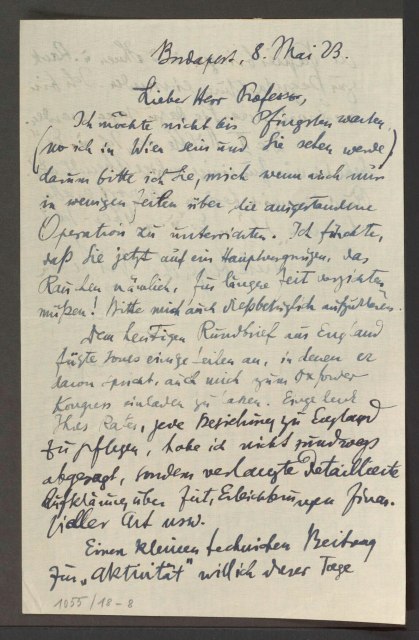 Budapest, 8. Mai 23.
Lieber Herr Professor,
Ich möchte nicht bis Pfingsten warten,
(wo ich in Wien sein und Sie sehen werde)
darum bitte ich Sie, mich wenn auch nur
in wenigen Zeilen über die ausgestandene
Operation zu unterrichten. Ich fürchte,
daß Sie jetzt auf ein Hauptvergnügen, das
Rauchen nämlich, für längere Zeit verzichten
müßen! Bitte mich auch dießbetüglich aufzuklären.
Dem heutigen Rundbrief aus England
fügte Jones einige Zeilen an, in denen er
davon spricht, auch mich zum Oxforder
Kongress einladen zu lassen. Eingedenk
Ihres Rates, jede Beziehung zu England
zu pflegen, habe ich nicht rundwegs
abgesagt, sondern verlangte Detaillierte
Aufklärung über Zeit, Erleichterungen finan-
zieller Art usw.
Einen kleinen technischen Beitrag
zur „Aktivität" will ich dieser Tage
1055/18-8